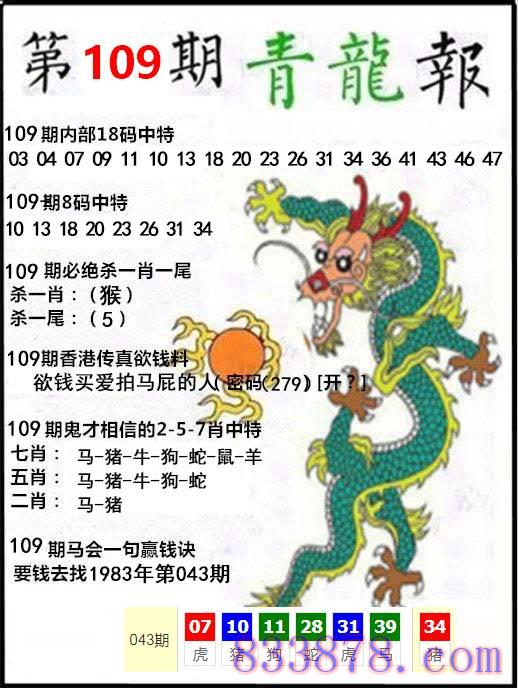 第109期青龍報
109期内部18码中特
03 04 07 09 11 10 13 18 20 23 26 31 34 36 41 43 46 47
109期8码中特
10 13 18 20 23 26 31 34
109期必绝杀一肖一尾
杀一肖：（猴）
杀一尾：（5）
109期香港传真欲钱料
欲钱买爱拍马屁的人(密码(279)[开？]
109期鬼才相信的2-5-7肖中特
七肖：马-猪-牛-狗-蛇-鼠-羊
五肖：马-猪-牛-狗-蛇
二肖：马-猪
109期马会一句赢钱诀
要钱去找1983年第043期
043期 07 10 11 28 31 39 34
虎 猪 狗 蛇 虎 马 猪
833878.com